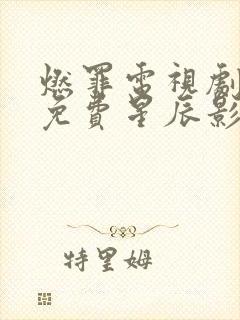 燃罪電視劇
免費星辰影
特里姆